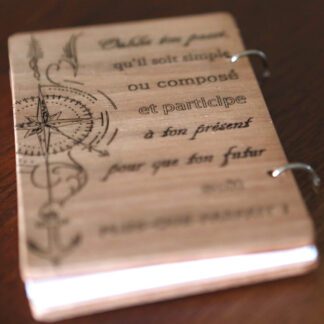 Oublie ton passé,
qu'il soit simple
ou composé
et participe
à ton présent
pour que ton futur
soit
PLUS-QUE-PARFAIT !